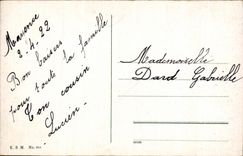 Mayence
2.4.22
Bon baiser
pour toute la famille
Ton cousin
Lucien.
Mademoiselle
Dard Gabrielle
E. D. M. No.